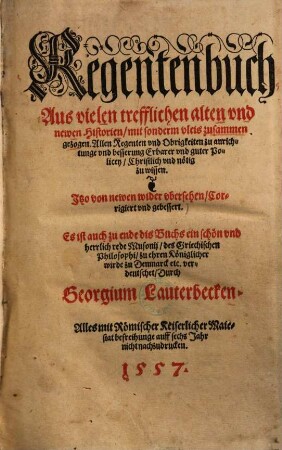 Regentenbuch
Aus vielen trefflichen alten vnd
newen Historien/ mit sonderm vleis zusammen
gezogen. Allen Regenten vnd Obrigkeiten zu anrich-
tunge vnd besserung Erbarer vnd guter Po-
licey / Christlich vnd nötig
zu wissen.
Itzo von newen wider vbersehen/ Cor-
rigiert vnd gebessert.
Es ist auch zu ende dis Buchs ein schön vnd
herrlich rede Musonij/ des Griechischen
Philosophi/ zu ehren Königlicher
wirde zu Denmarck etc. ver-
deutschet/ Durch
Georgium Lauterbecken.
Alles mit Römischer Keiserlicher Maie-
stat befreihunge auff sechs Jahr
nicht nachzudrucken.
1557.